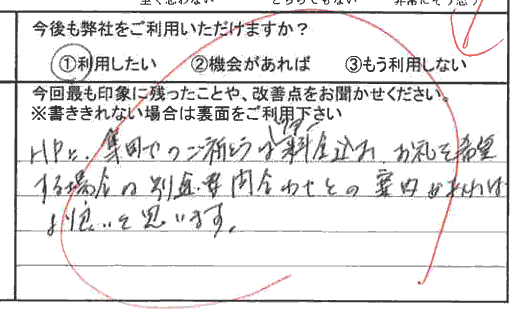 全く思わない どちらでもない 非常にそう思う
今後も弊社をご利用いただけますか?
①利用したい ②機会があれば ③もう利用しない
今回最も印象に残ったことや、改善点をお聞かせください。
※書ききれない場合は裏面をご利用下さい
HPに、集団でのご祈とうは料金込み、お札を希望
する場合は別途要問合わせとの案内があれば
より良いと思います。